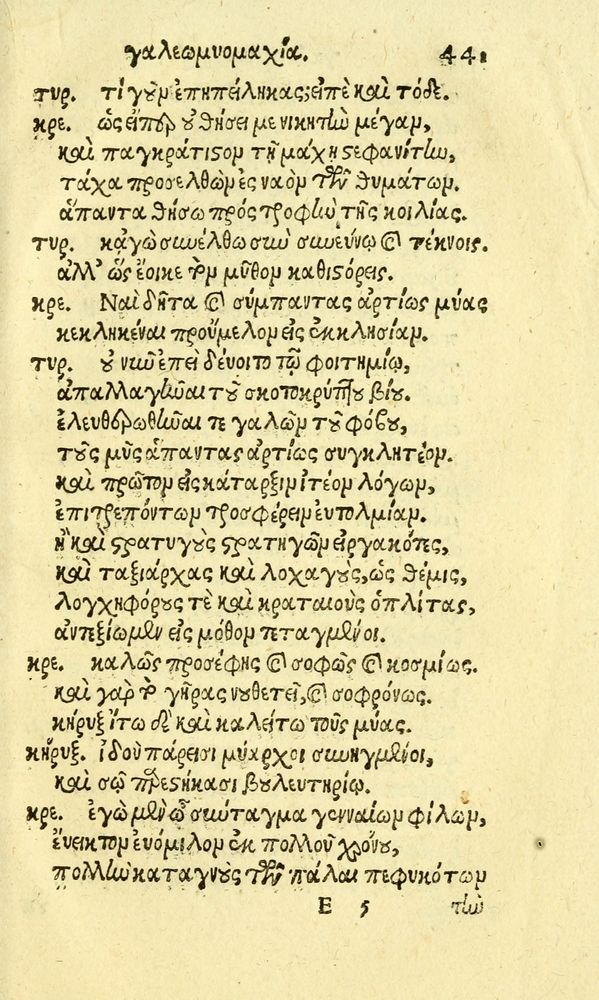 γαλεωμυομαχία. 441
τυρ. τί γοῦν ἐπηπείληκας; εἰπὲ καὶ τόδε.
κρε. ὡς εἴπερ οὐ θήσει με νικητὴν μέγαν,
καὶ παγκράτιστον τῇ μάχῃ στεφανίτην,
τάχα προσελθὼν ἐς ναὸν τῶν θυμάτων.
ἅπαντα θήσω πρὸς τροφὴν τῆς κοιλίας.
τυρ. κἀγὼ συνέλθω σὺν συνεύνῳ καὶ τέκνοις.
ἀλλ' ὡς ἔοικε τὸν μῦθον καθιστόρεις.
κρε. Ναὶ δῆτα καὶ σύμπαντας ἀρτίως μύας
κεκληκέναι προὔμελον εἰς ἐκκλησίαν.
τυρ. οὐκοῦν ἐπεὶ δένοιτο τῷ φοιτημίῳ,
ἀπαλλαγῆναι τοῦ σκοτοκρύπτου βίου.
ἐλευθερωθῆναι τε γαλῶν τοῦ φόβου,
τοὺς μῦς ἅπαντας ἀρτίως συγκλητέον.
καὶ πρῶτον εἰς κάταρξιν ἰτέον λόγων,
ἐπιτρεπόντων προσφέρειν εὐτολμίαν.
ἢ καὶ στρατυγοὺς στρατηγῶν εἰργακότες,
καὶ ταξιάρχας καὶ λοχαγοὺς, ὡς θέμις,
λογχηφόρους τὲ καὶ κραταιοὺς ὁπλίτας,
ἀντεξίωμεν εἰς μόθον τεταγμένοι.
κρε. καλῶς προσέφης καὶ σοφῶς καὶ κοσμίως.
καὶ γὰρ τὸ γῆρας νουθετεῖ, καὶ σοφρόνως.
κήρυξ ἴτω δὲ καὶ καλείτω τοὺς μύας.
κῆρυξ. ἰδοὺ πάρεισι μύαρχοι συνηγμένοι,
καὶ σῷ πρεστήκασι βουλευτηρίῳ.
κρε. ἐγὼ μὲν ὦ σύνταγμα γενναίων φίλων,
ἔνεικτον εὐόμιλον ἐκ πολλοῦ χρόνου,
πολλὴν καταγνοὺς τῶν πάλαι πεφυκότων
E 5 τὴν